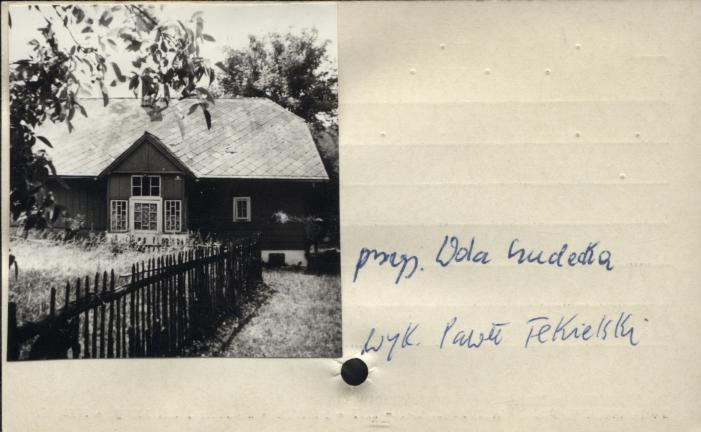 przys. Wola Ludecka
wyk. Paweł Tekielski